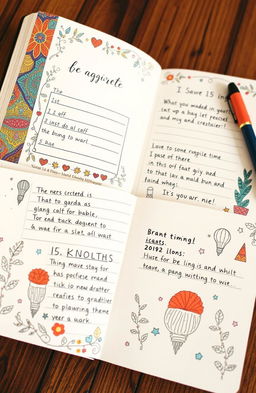 be aggurete
The
1st
the bring to warl
I Save 15 in
What you maded in year
sat up a bag let precief
and my and crestacier!
Love to some ruspile time
I pase of there
in this off feat guy and
to that lav a mald bun and
faind whay:
It's you avr nie!
The ners cectend is
That to garda as
glang calf for bable,
Tor end tuck degount to
& wae for a slet. all wait
15. KNOLTHS
Thing move stay for
has pocfiese mand
tick io new dratter
reafies to gradtiier
to plowring theme
year a work,
Brant timng!
icants:
20192 Ilons:
Huse for be ling is and whilst
teave, a pang witting to wie...